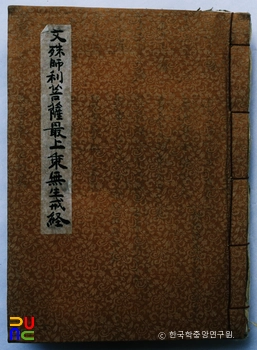 文殊師利菩薩最上乗無生戒経
© 한국학중앙연구원